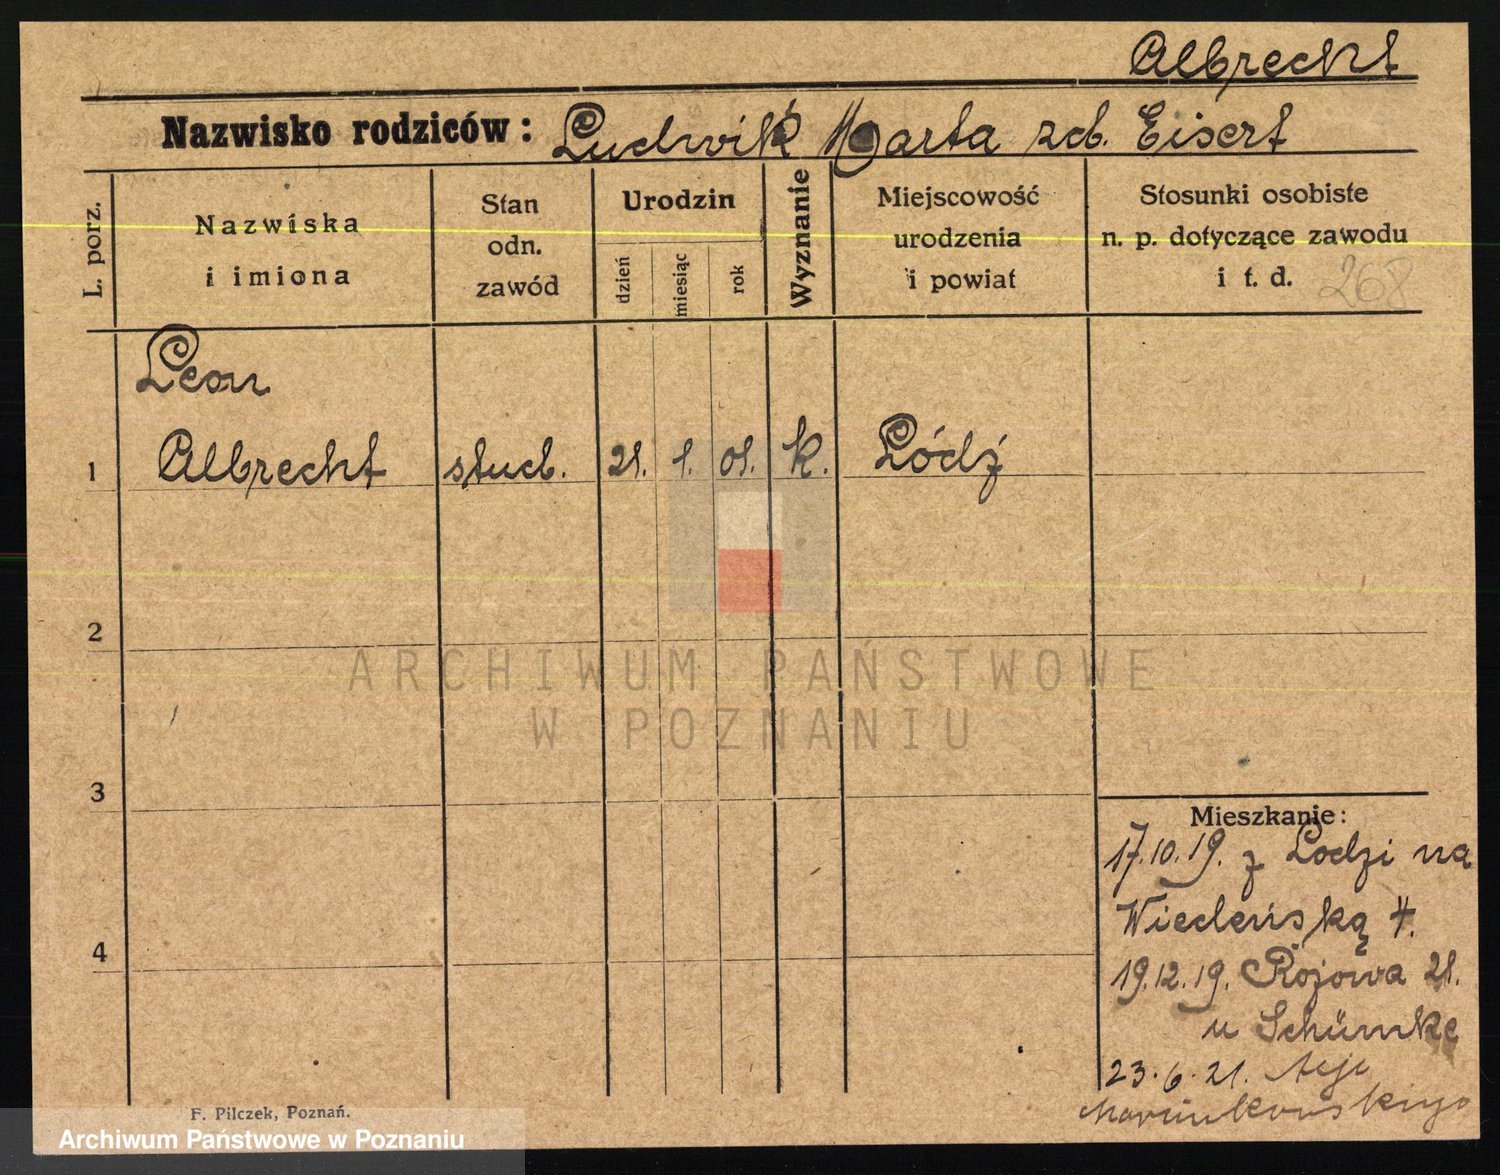 Albrecht
Nazwisko rodziców: Ludwik Marta zd. Eisert
L. porz.
Nazwiska
i imiona
Stan
odn.
zawód
Urodzin
dzień
miesiąc
rok
Wyznanie
Miejscowość
urodzenia
i powiat
Stosunki osobiste
n. p. dotyczące zawodu
i t. d.
268
Leon
1 Albrecht stud. 21. 1. 01. k. Łódź
2
3
4
Mieszkanie:
17.10.19. z Łodzi na
Wiedeńską 4.
19.12.19. Rojowa 21.
u Schümke
23.6.21.
Marcinkowskiego
F. Pilczek, Poznań.
ARCHIWUM PAŃSTWOWE
W POZNANIU
Archiwum Państwowe w Poznaniu